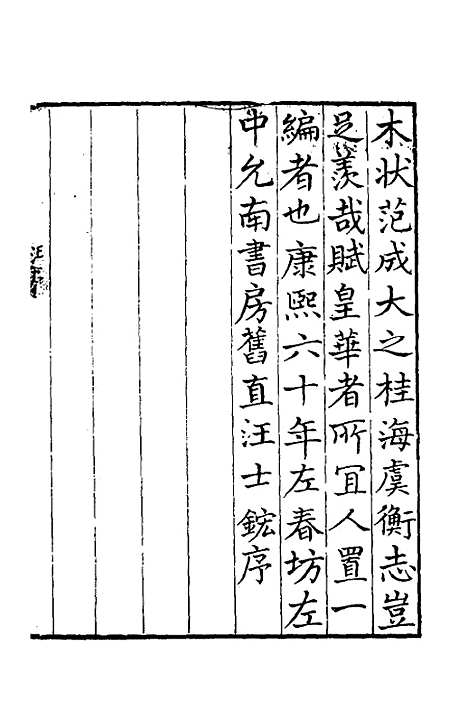 木状范成大之桂海虞衡志豈
足羡哉賦皇華者所宜人置一
編者也康熙六十年左春坊左
中允南書房舊直汪士鋐序
汪